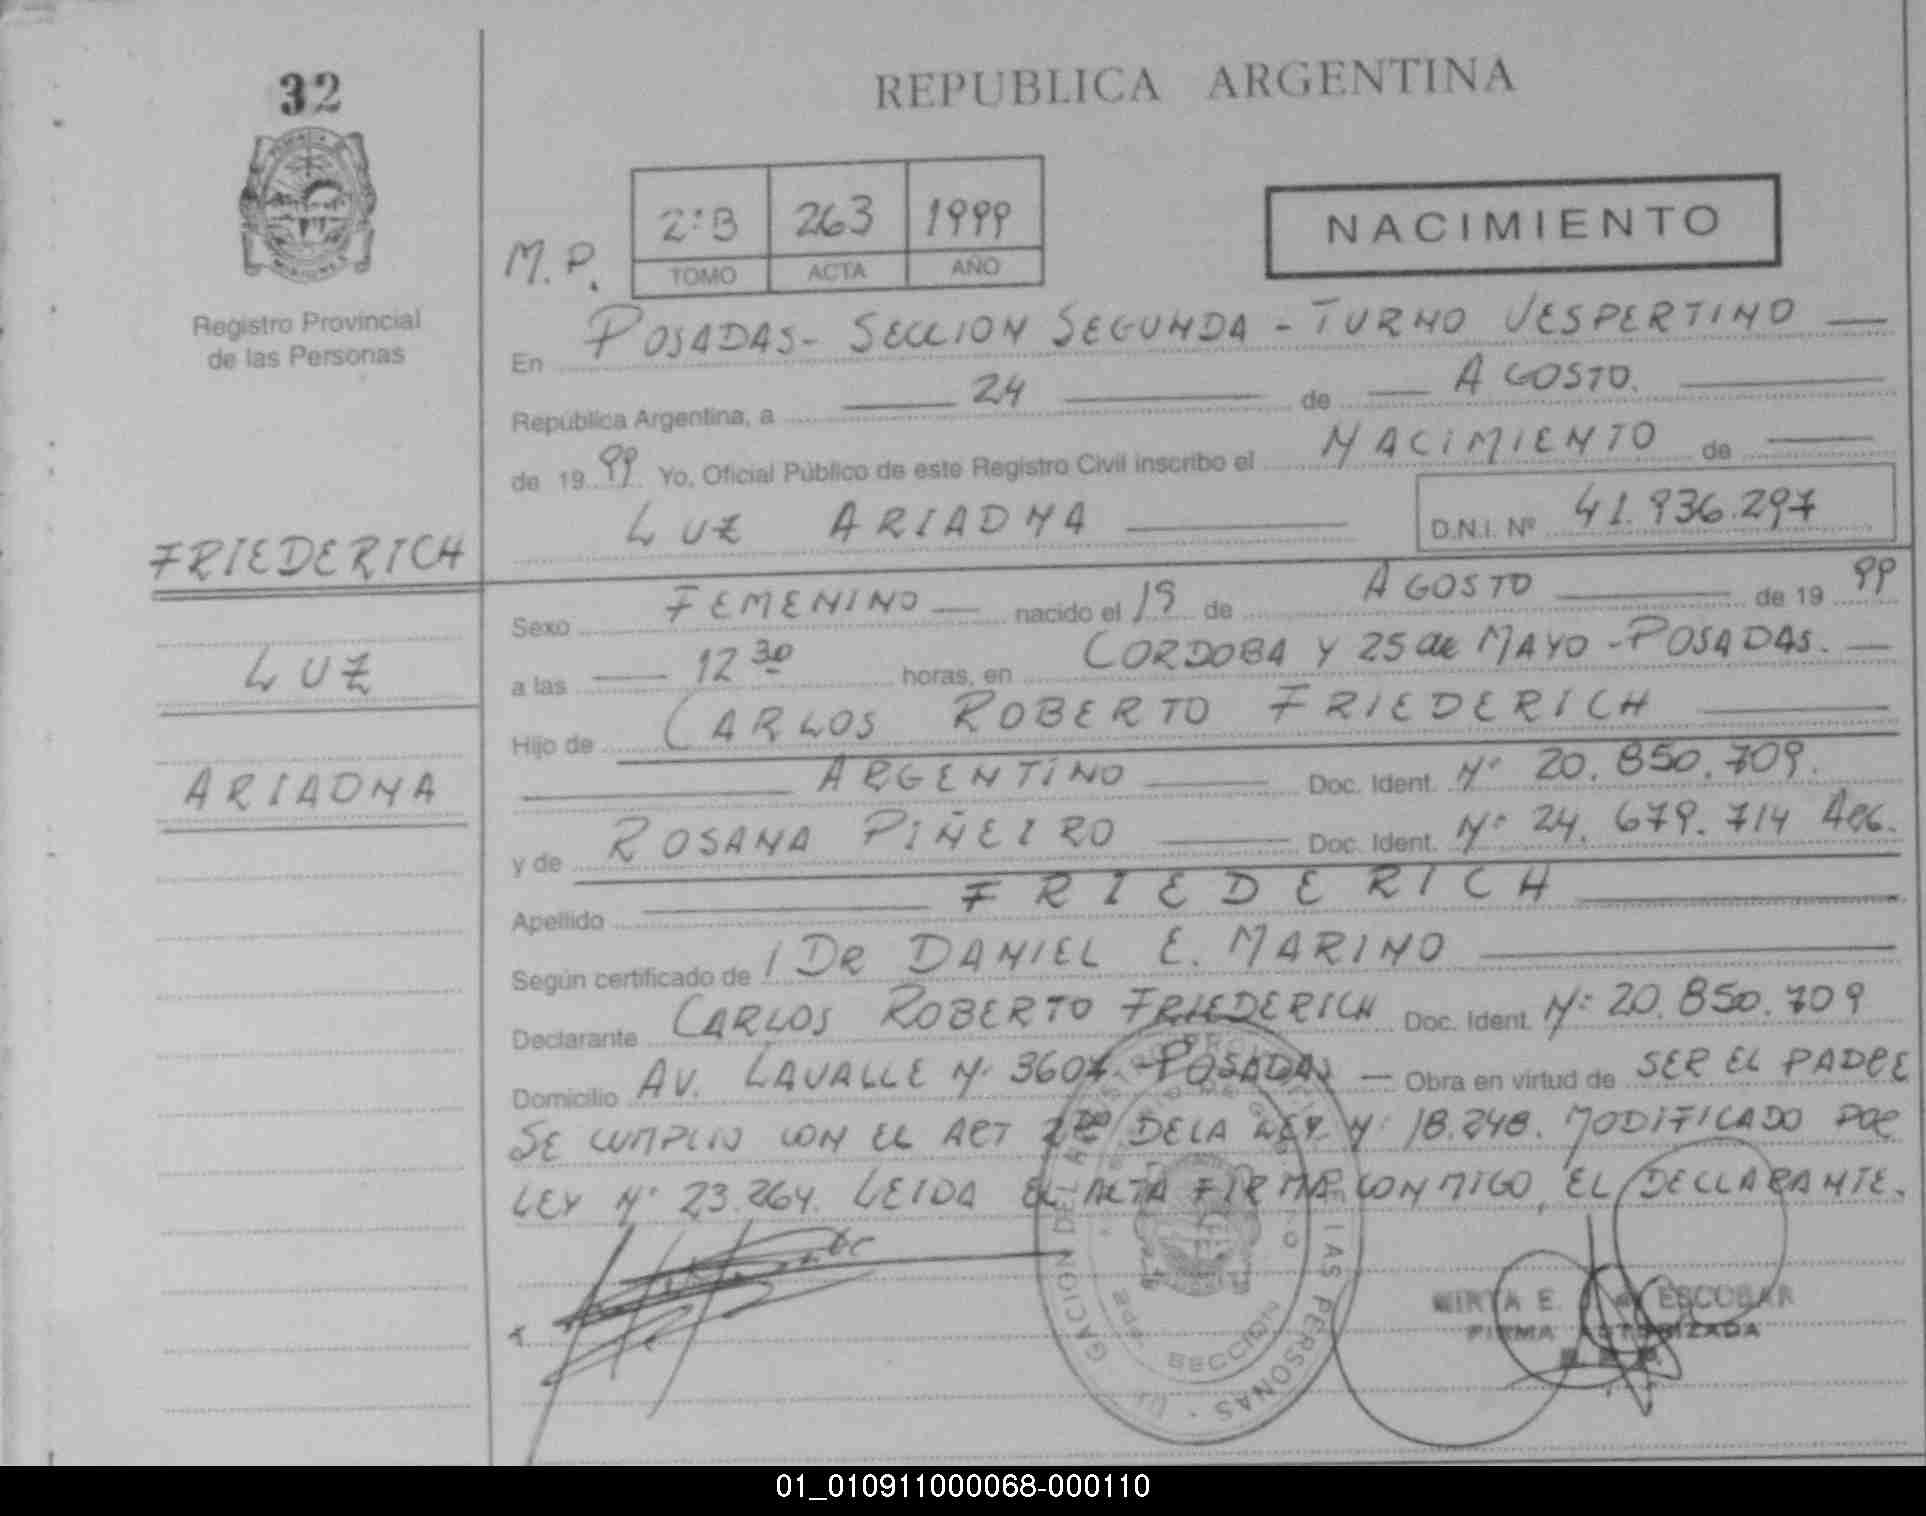 32
Registro Provincial
de las Personas
FRIEDERICH
LUZ
ARIADNA
REPUBLICA ARGENTINA
M.P.
2ºB 263 1999
TOMO ACTA AÑO
NACIMIENTO
En POSADAS - SECCION SEGUNDA - TURNO VESPERTINO
República Argentina, a 24 de AGOSTO.
de 19 99 Yo, Oficial Público de este Registro Civil inscribo el NACIMIENTO de
LUZ ARIADNA D.N.I. Nº 41.936.297
Sexo FEMENINO nacido el 19 de AGOSTO de 19 99
a las 12 30 horas, en CORDOBA Y 25 de MAYO - POSADAS.
Hijo de CARLOS ROBERTO FRIEDERICH
ARGENTINO Doc. Ident. Nº 20.850.709.
y de ROSANA PIÑEIRO Doc. Ident. Nº 24.679.714 ARG.
Apellido FRIEDERICH
Según certificado de DR DANIEL E. MARINO
Declarante CARLOS ROBERTO FRIEDERICH Doc. Ident. Nº 20.850.709
Domicilio AV. LAVALLE Nº 3607 - POSADAS Obra en virtud de SER EL PADRE
SE CUMPLIO CON EL ART 2DO DE LA LEY Nº 18.248. MODIFICADO POR
LEY Nº 23.264. LEIDA EL ACTA FIRMA CONMIGO, EL DECLARANTE.
DE LAS PERSONAS
SECCION
MIRTA E. ESCOBAR
FIRMA AUTORIZADA
01_010911000068-000110